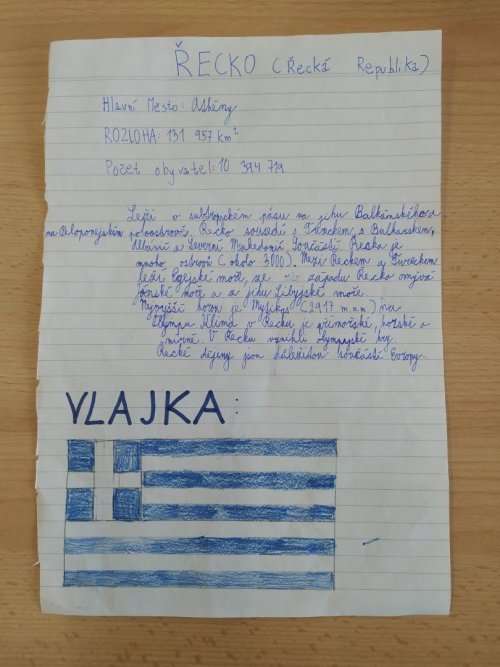 ŘECKO (Řecká Republika)
Hlavní Město: Athény
ROZLOHA: 131 957 km²
Počet obyvatel: 10 394 719
Leží v subtropickém pásu na jihu Balkánského a
na Peloponéském poloostrově. Řecko sousedí s Tureckem, s Bulharskem,
Albánií a Severní Makedonií. Součástí Řecka je
mnoho ostrovů (okolo 3000). Mezi Řeckem a Tureckem
leží Egejské moře, ze západu Řecko omývá
Jónské moře a z jihu Libyjské moře.
Nejvyšší horou je Mytikas (2917 m.n.m) na
Olympu. Klima v Řecku je přímořské, horské a
mírné. V Řecku vznikli olympijské hry.
Řecké dějiny jsou důležitou součástí Evropy.
VLAJKA: